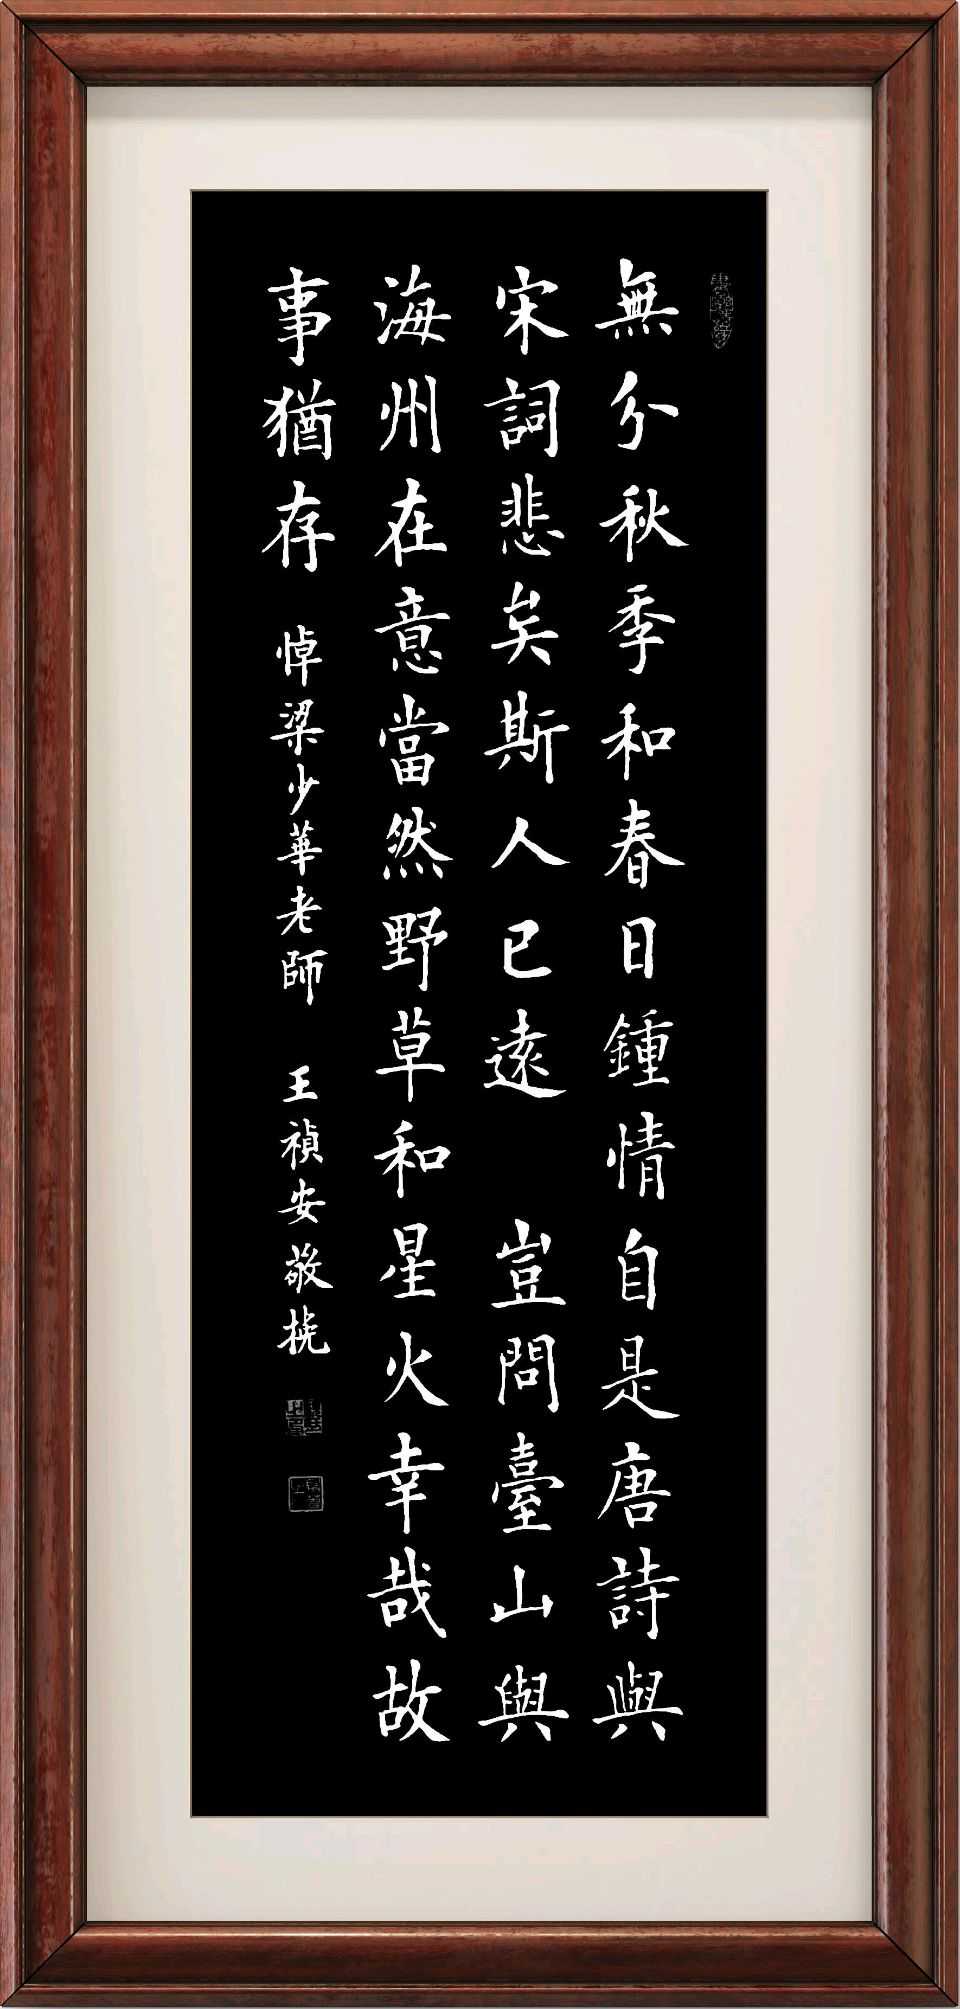 無分秋季和春日鍾情自是唐詩與
宋詞悲矣斯人已遠 豈問臺山與
海州在意當然野草和星火幸哉故
事猶存 悼梁少華老師 王禎安敬撓